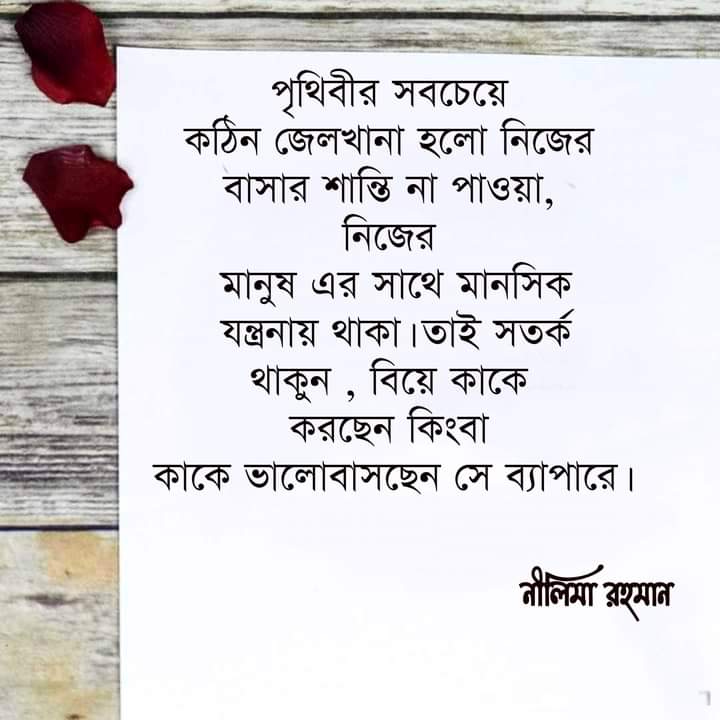 পৃথিবীর সবচেয়ে
কঠিন জেলখানা হলো নিজের
বাসার শান্তি না পাওয়া,
নিজের
মানুষ এর সাথে মানসিক
যন্ত্রনায় থাকা।তাই সতর্ক
থাকুন , বিয়ে কাকে
করছেন কিংবা
কাকে ভালোবাসছেন সে ব্যাপারে।
নীলিমা রহমান